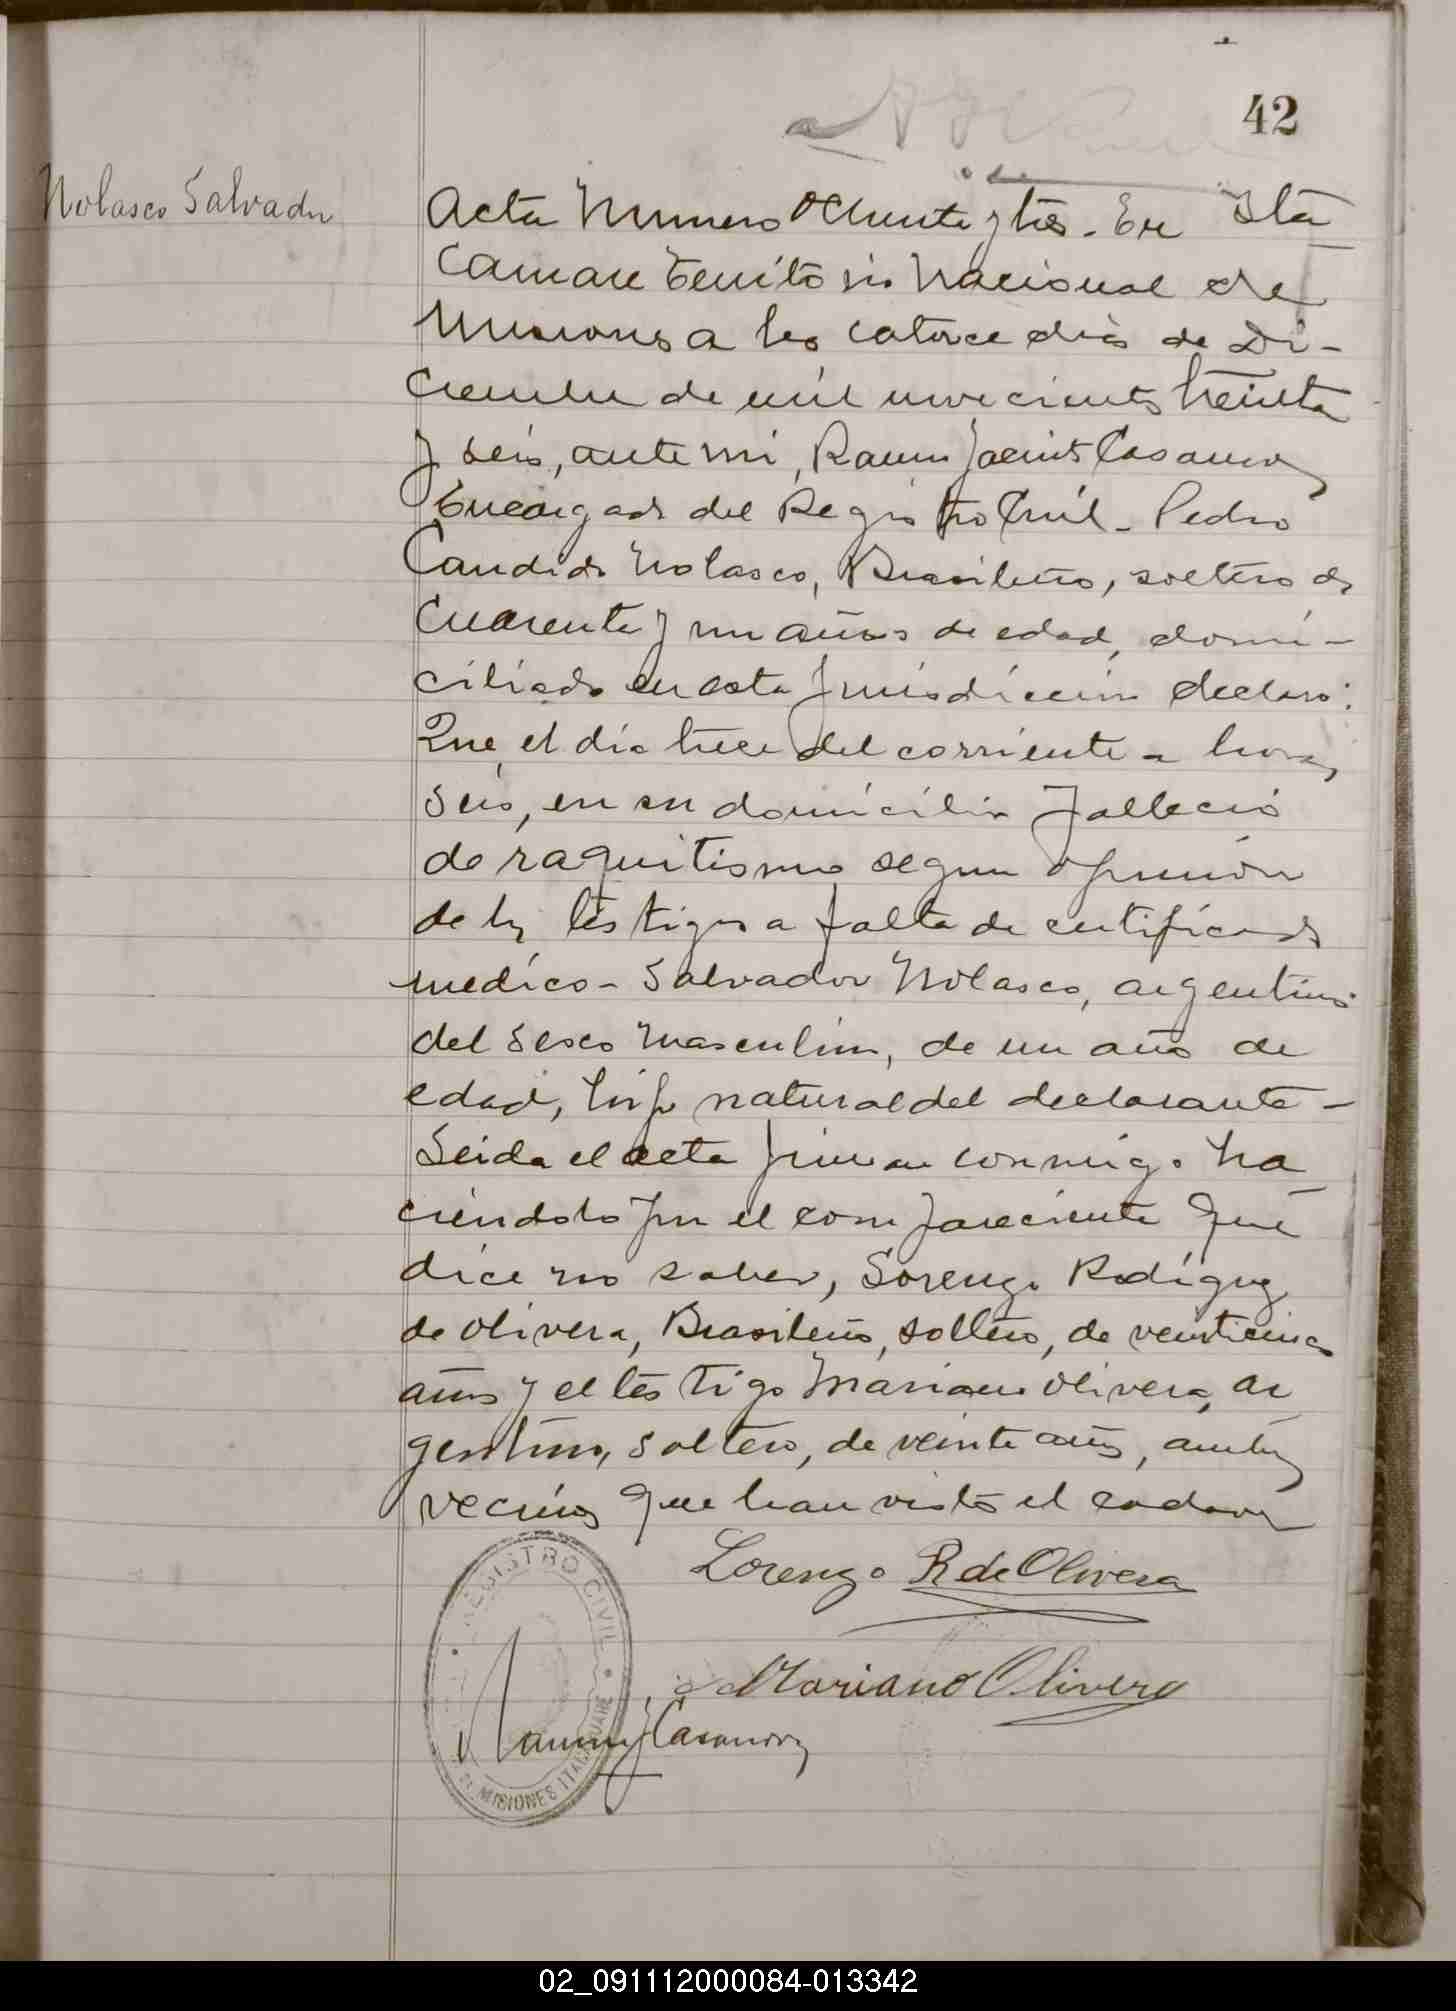 42
Nolasco Salvador
Acta Numero Ochenta y tres. En Ita
Caruaré Territorio Nacional de
Misiones a los catorce dias de Di-
ciembre de mil novecientos treinta
y seis, ante mi, Ramon Jacinto Casanova
Encargado del Registro Civil - Pedro
Candido Nolasco, Brasileño, soltero de
Cuarenta y un años de edad, domi-
ciliado en esta Jurisdiccion declaro:
Que el dia trece del corriente a horas
seis, en su domicilio falleció
de raquitismo segun opinión
de los testigos a falta de certificado
medico - Salvador Nolasco, argentino
del sexo masculino, de un año de
edad, hijo natural del declarante -
Leida el acta firman conmigo ha
ciendolo por el compareciente que
dice no saber, Lorenzo Rodiguez
de Olivera, Brasileño, soltero, de veinticinco
años y el testigo Mariano Olivera, ar
gentino, soltero, de veinte años, ambos
vecinos que han visto el cadaver
Lorenzo R de Olivera
Mariano Olivera
Ramon J Casanova
REGISTRO CIVIL
MISIONES ITACARUARE
02_091112000084-013342